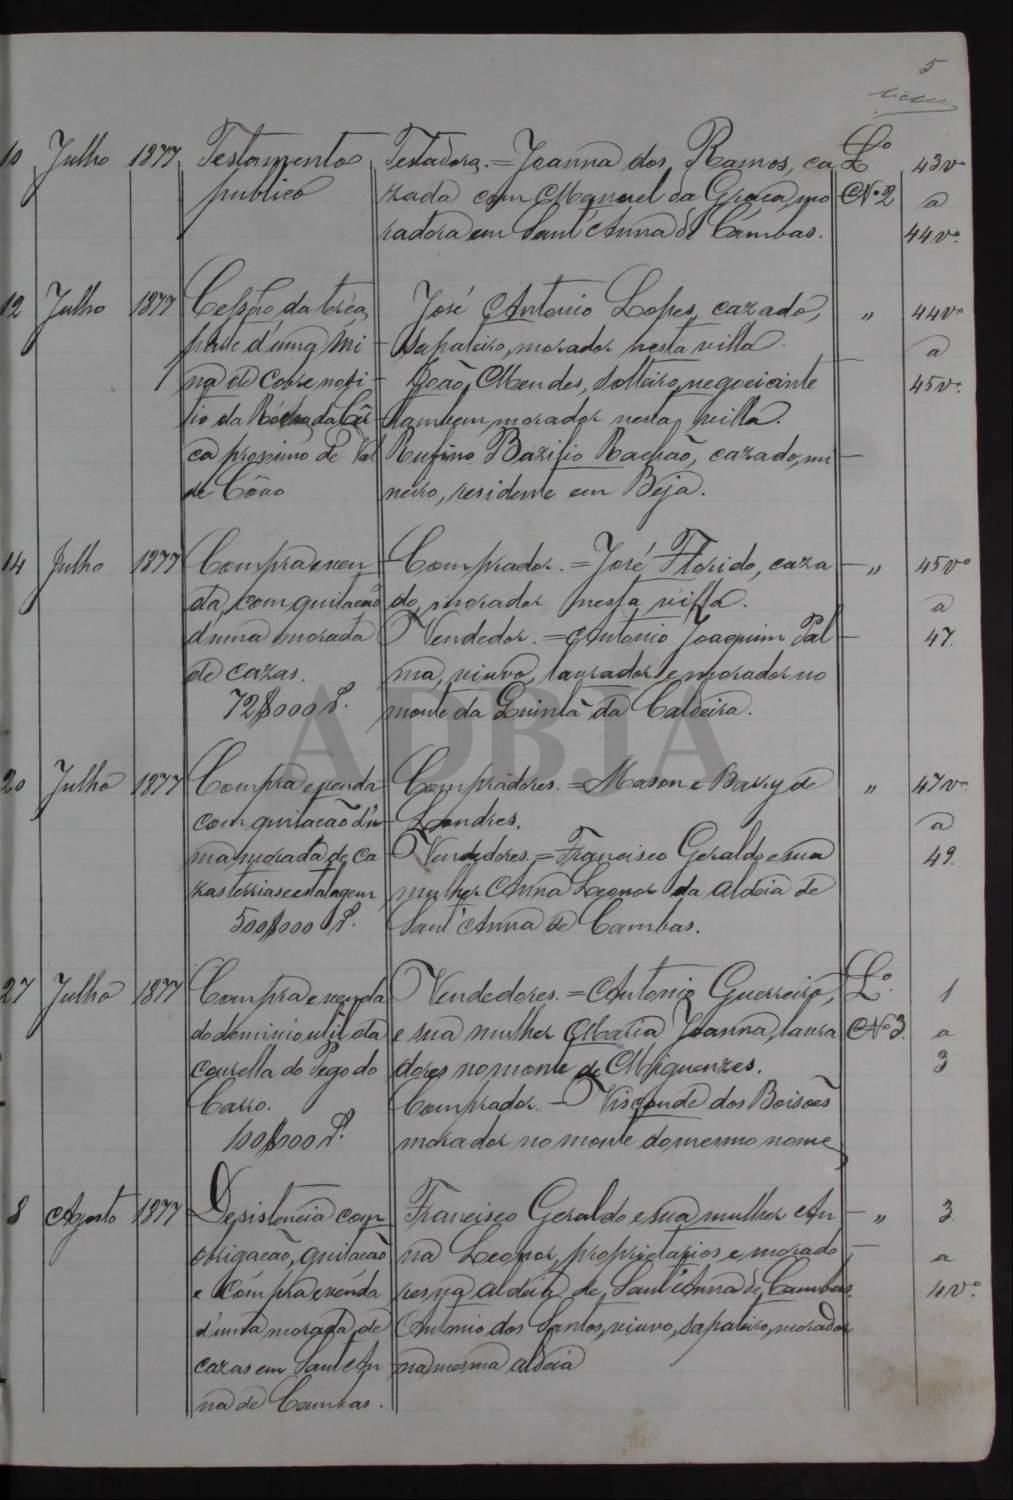 5
10 Julho 1877 Testamento Testadora. = Joanna dos Ramos, ca L.º 43vº
publico zada com Manuel da Graça, mo Nº 2 a
radora em Sant'Anna de Cambas. 44vº
12 Julho 1877 Cessão da terça José Antonio Lopes, cazado, " 44vº
parte d'uma mi Sapateiro, morador nesta villa. a
na de cobre no si João Mendes, solteiro, negociante 45vº
tio da da tambem morador nesta villa.
ca proximo de Val Rufino Bazilio Rachão, cazado, mi
de Côvo neiro, residente em Beja.
14 Julho 1877 Compra e ven Comprador. = José Florido, caza " 45vº
da, com quitação do, morador nesta villa. a
d'uma morada Vendedor. = Antonio Joaquim Pal 47.
de cazas. ma, viuvo, lavrador e morador no
72$000 r. monte da Quintã da Caldeira.
20 Julho 1877 Compra e venda Compradores. = Mason e Barry de " 47vº
com quitação d'u Londres. a
ma morada de ca Vendedores. = Francisco Geraldo e sua 49.
zas terrias e estalagem mulher Anna Leonor da aldeia de
500$000 r. Sant'Anna de Cambas.
27 Julho 1877 Compra e venda Vendedores. = Antonio Guerreiro, L.º 1
do dominio util da e sua mulher Maria Joanna, lavra Nº 3. a
courella do Pego do dores no monte de 3
Carro. Comprador. = Visconde dos Boisões
100$000 r. morador no monte do mesmo nome
8 Agosto 1877 Desistencia com Francisco Geraldo e sua mulher An " 3
obrigação, quitação na Leonor, proprietarios e morado a
e Compra e venda res na aldeia de Sant'Anna de Cambas. 4vº
d'uma morada de Antonio dos Santos, viuvo, sapateiro, morador
cazas em Sant'An na mesma aldeia
na de Cambas.
ADBJA